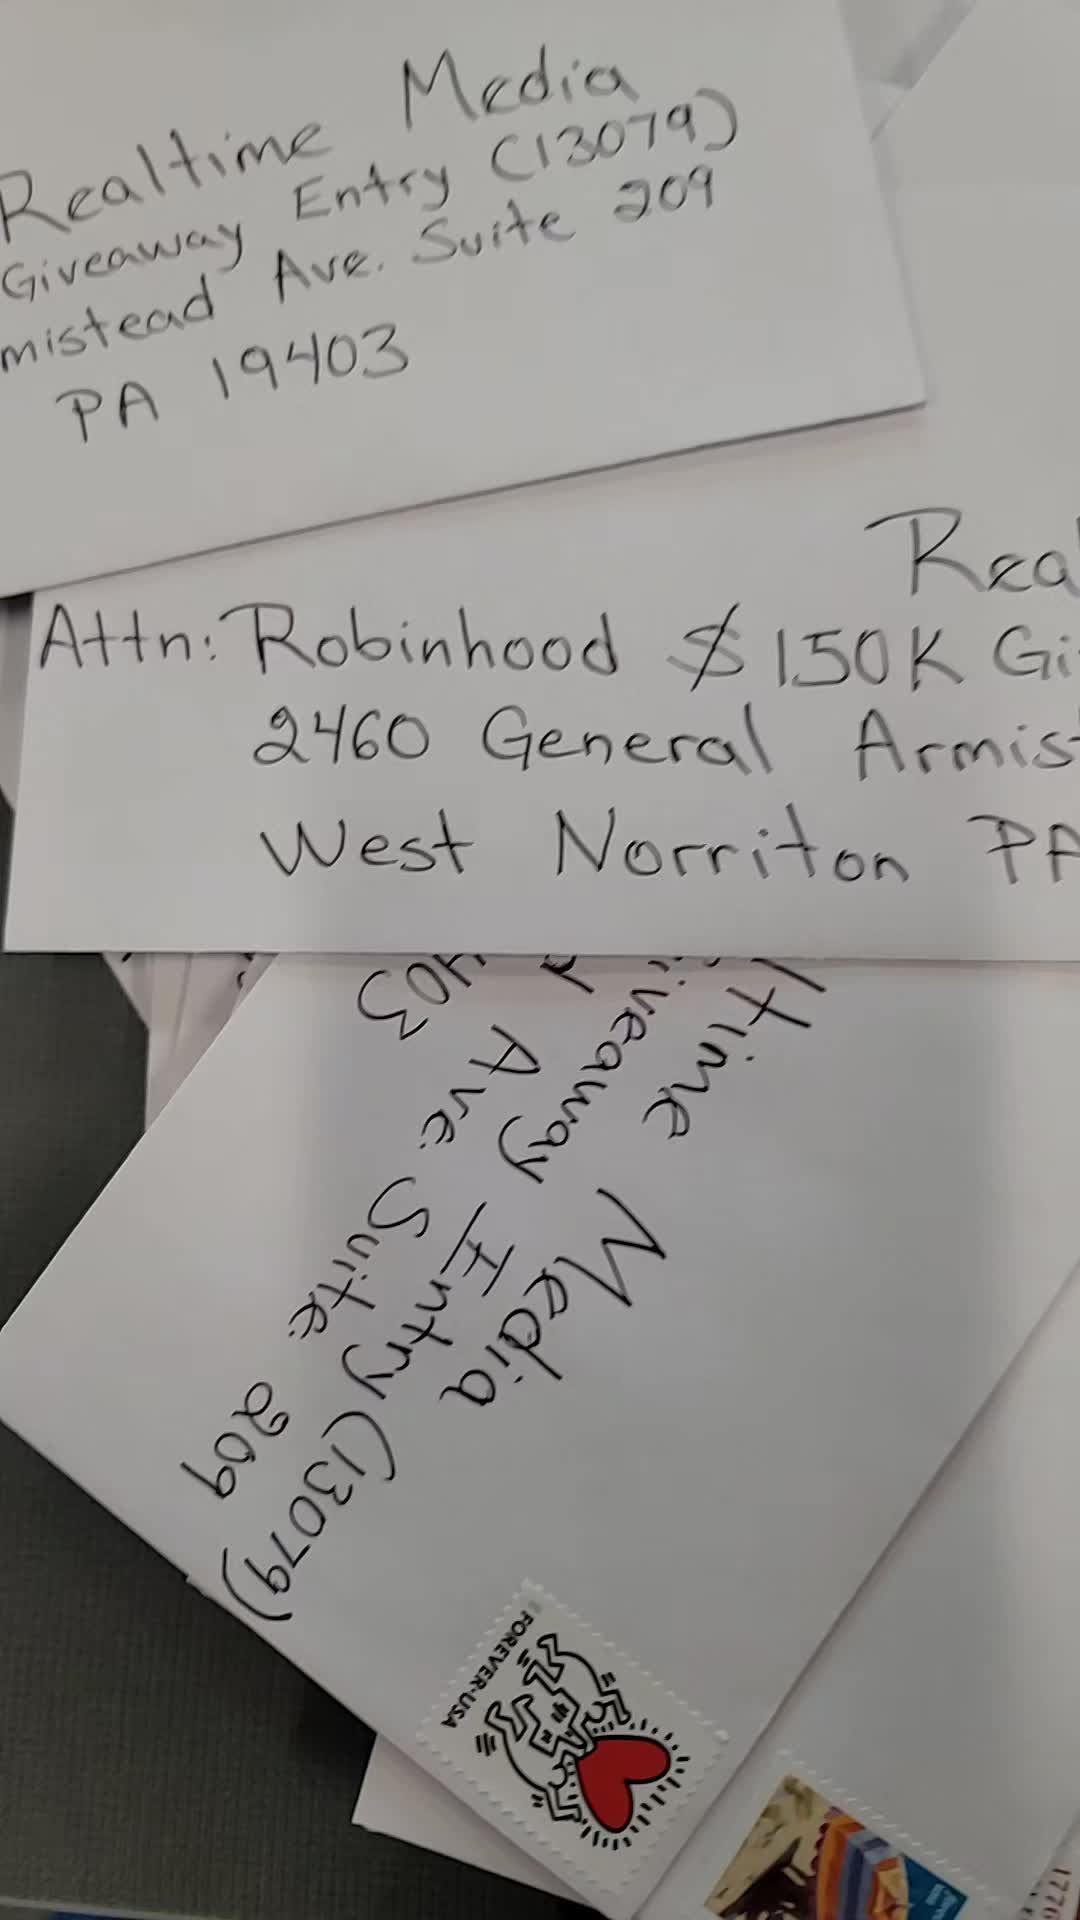 Realtime Media
Giveaway Entry (13079)
mistead Ave. Suite 209
PA 19403
Rea
Attn: Robinhood $150K Gi
2460 General Armis
West Norriton PA
ltime Media
iveaway Entry (13079)
d Ave. Suite. 209
403
FOREVER-USA
1776